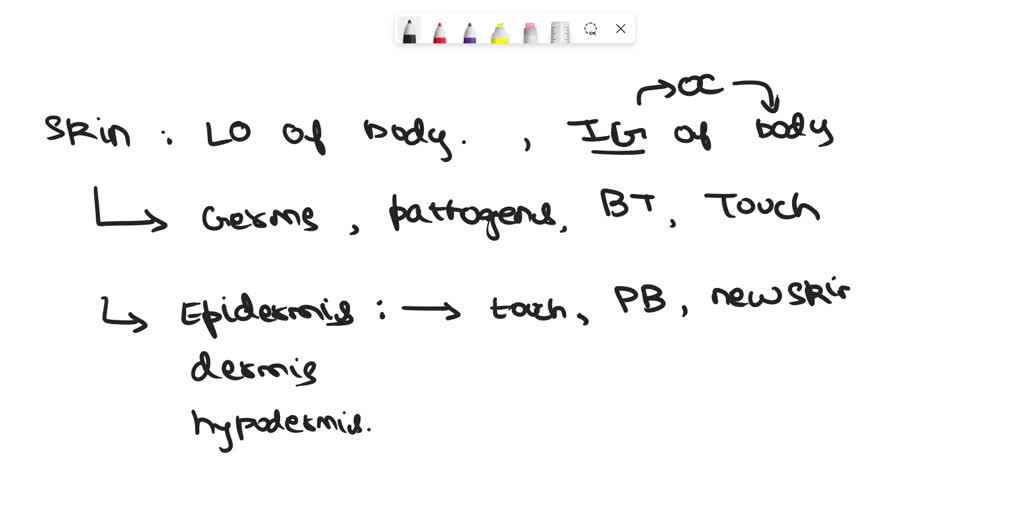 OC
Skin : LO of Body. , IG of Body
Germs, pathogens, BT, Touch
Epidermis : → touch, PB, new skin
dermis
hypodermis.